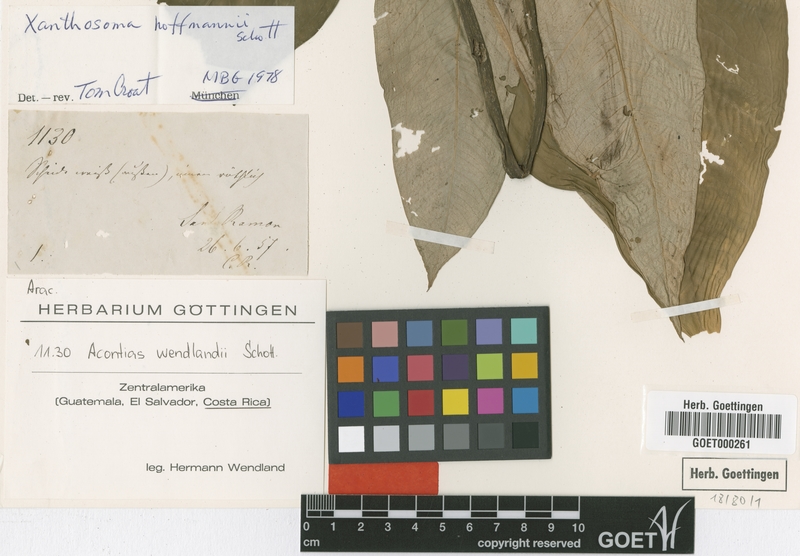 Xanthosoma hoffmannii
Schott
MBG 1978
Det. — rev. Tom Croat
München
1130
Scheide weiß (außen), innen röthlich
San Ramon
26. 6. 57.
C. R.
Arac.
HERBARIUM GÖTTINGEN
1130 Acontias wendlandii Schott.
Zentralamerika
(Guatemala, El Salvador, Costa Rica)
leg. Hermann Wendland
Herb. Goettingen
GOET000261
Herb. Goettingen
0 1 2 3 4 5 6 7 8 9 10
cm
copyright reserved
GOET